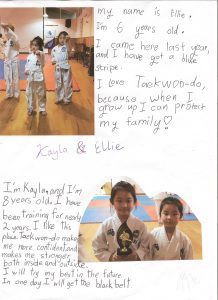 my name is Ellie.
i'm 6 years old.
I came here last year,
and I have got a blue
stripe.
I love Taekwon-do,
because when I
grow up I can protect
my family♡
Kayla & Ellie
I'm Kayla, and I'm
8 years old. I have
been training for nearly
2 years. I like this
place. Taekwon-do make
me more confident and
makes me stronger
both inside and outside.
I will try my best in the future.
In one day I will get the black belt.